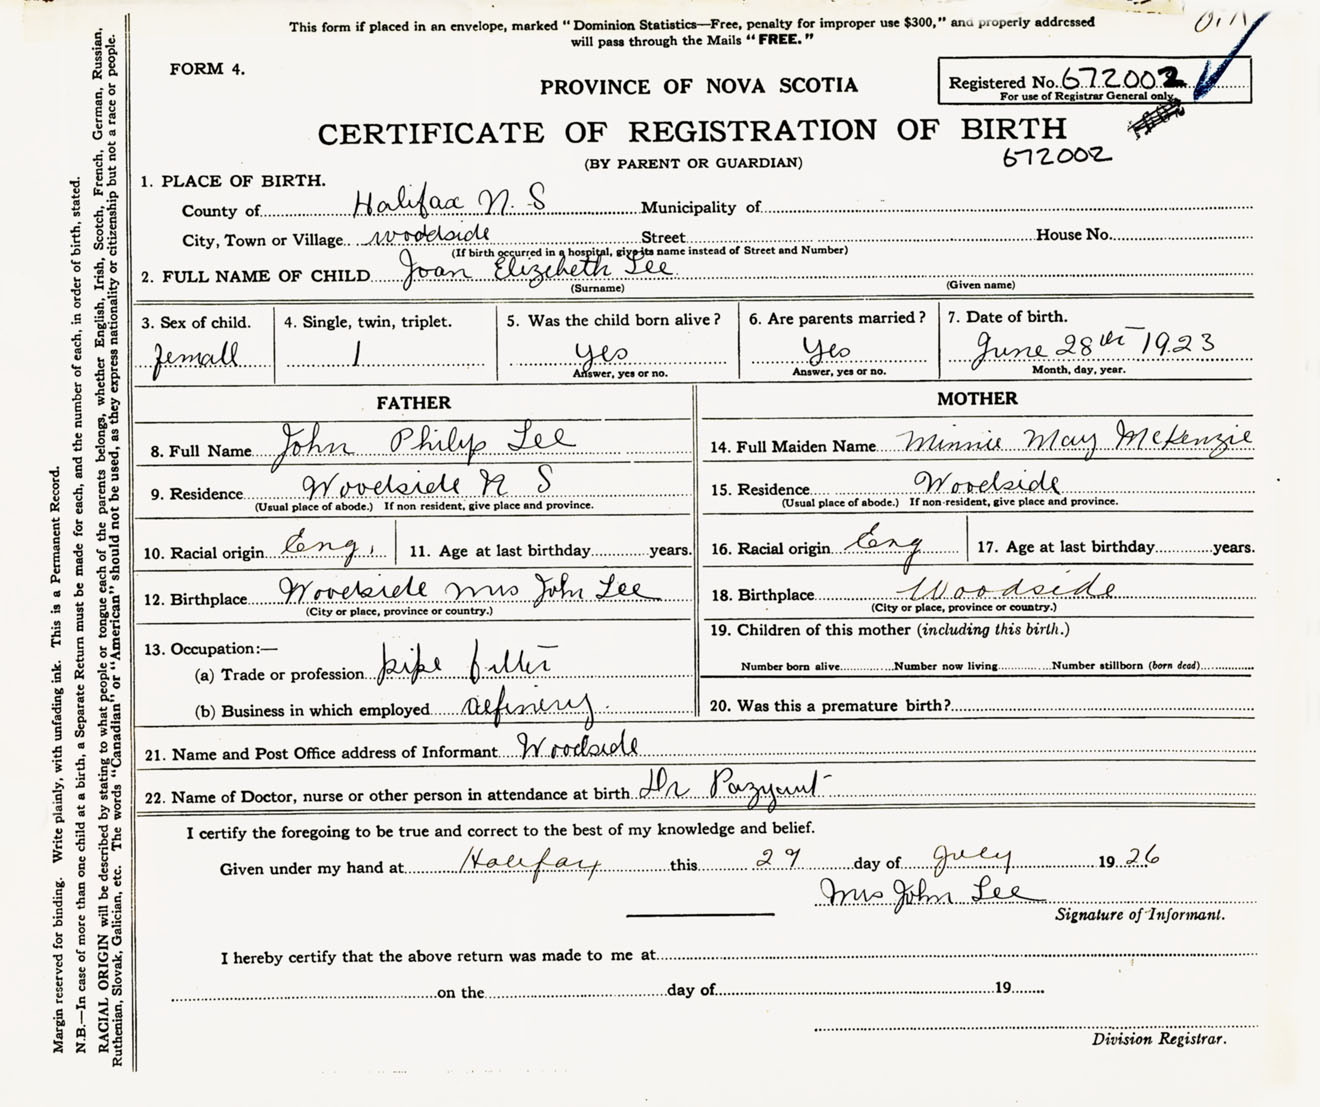 This form if placed in an envelope, marked "Dominion Statistics—Free, penalty for improper use $300," and properly addressed
will pass through the Mails "FREE."
FORM 4.
PROVINCE OF NOVA SCOTIA
Registered No. 672002
For use of Registrar General only.
CERTIFICATE OF REGISTRATION OF BIRTH
672002
(BY PARENT OR GUARDIAN)
1. PLACE OF BIRTH.
County of Halifax N. S Municipality of
City, Town or Village woodside Street House No.
(If birth occurred in a hospital, give its name instead of Street and Number)
2. FULL NAME OF CHILD Joan Elizebeth Lee
(Surname) (Given name)
3. Sex of child. 4. Single, twin, triplet. 5. Was the child born alive? 6. Are parents married? 7. Date of birth.
femall 1 yes Yes June 28th 1923
Answer, yes or no. Answer, yes or no. Month, day, year.
FATHER MOTHER
8. Full Name John Philip Lee 14. Full Maiden Name Minnie May McKenzie
9. Residence Woodside N S 15. Residence Woodside
(Usual place of abode.) If non resident, give place and province. (Usual place of abode.) If non-resident, give place and province.
10. Racial origin Eng. 11. Age at last birthday years. 16. Racial origin Eng 17. Age at last birthday years.
12. Birthplace Woodside Mrs John Lee 18. Birthplace Woodside
(City or place, province or country.) (City or place, province or country.)
13. Occupation:— 19. Children of this mother (including this birth.)
(a) Trade or profession pipe fitter Number born alive Number now living Number stillborn (born dead)
(b) Business in which employed Refinery. 20. Was this a premature birth?
21. Name and Post Office address of Informant Woodside
22. Name of Doctor, nurse or other person in attendance at birth Dr Pazyant
I certify the foregoing to be true and correct to the best of my knowledge and belief.
Given under my hand at Halifax this 29 day of July 1926
Mrs John Lee
Signature of Informant.
I hereby certify that the above return was made to me at
on the day of 19
Division Registrar.
Margin reserved for binding. Write plainly, with unfading ink. This is a Permanent Record.
N.B.—In case of more than one child at a birth, a Separate Return must be made for each, and the number of each, in order of birth, stated.
RACIAL ORIGIN will be described by stating to what people or tongue each of the parents belongs, whether English, Irish, Scotch, French, German, Russian,
Ruthenian, Slovak, Galician, etc. The words "Canadian" or "American" should not be used, as they express nationality or citizenship but not a race or people.